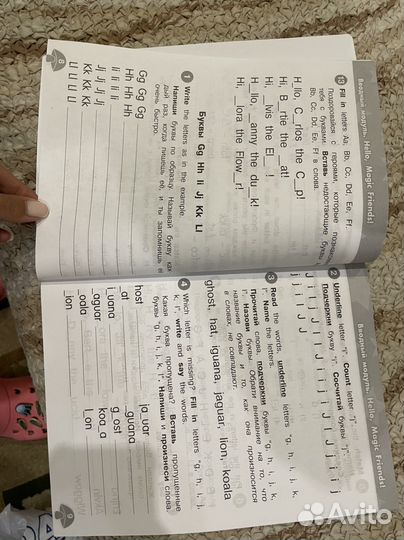 Вводный модуль. Hello, Magic Friends!
13 Fill in letters Aa, Bb, Cc, Dd, Ee, Ff.
Поздоровайся с героями, которые познакомят
тебя с буквами. Вставь недостающие буквы
Bb, Cc, Dd, Ee, Ff в слова.
H_llo, C_rlos the C_p!
Hi, B_rtie the _at!
Hi, _lvis the El_ _!
H_llo, _anny the du_k!
Hi, _lora the Flow_r!
Буквы Gg Hh Ii Jj Kk Ll
1 Write the letters as in the example.
Напиши буквы по образцу. Называй букву каж-
дый раз, когда пишешь её, и ты запомнишь её
очень быстро.
Gg Gg Gg
Hh Hh Hh
Ii Ii Ii Ii
Jj Jj Jj Jj
Kk Kk Kk
Ll Ll Ll Ll
8
Вводный модуль. Hello, Magic Friends!
2 Underline letter "i". Count letter "i".
Подчеркни букву "i". Сосчитай буквы "i".
3 Read the words, underline letters "g, h, i, j, k,
l". Name the letters.
Прочитай слова, подчеркни буквы "g, h, i, j, k,
l". Назови буквы. Обрати внимание на то, что
название буквы и то, как она произносится
в словах, не совпадают.
ghost, hat, iguana, jaguar, lion, koala
4 Which letter is missing? Fill in letters "g, h, i, j,
k, l", write and say the words.
Какая буква пропущена? Вставь пропущенные
буквы "g, h, i, j, k, l". Напиши и произнеси слова.
host
_at
i_uana
_aguar
_oala
_ion
ja_uar
_guana
g_ost
koa_a
l_on
9
Avito